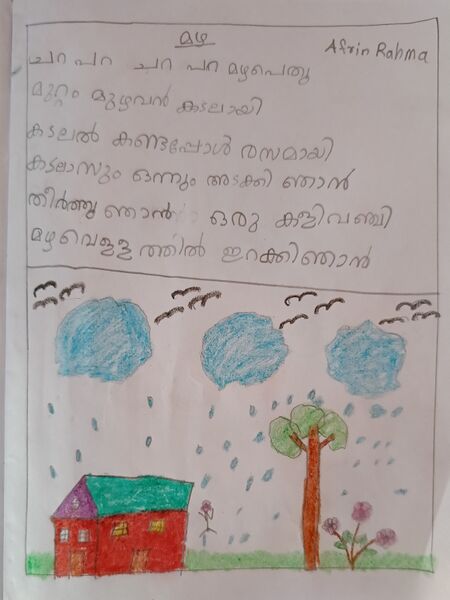 മഴ
Afrin Rahma
ചറ പറ ചറ പറ മഴപെയ്തു
മുറ്റം മുഴവൻ കടലായി
കടലൽ കണ്ടപ്പോൾ രസമായി
കടലാസും ഒന്നും അടക്കി ഞാൻ
തീർത്തു ഞാൻ ഒരു കളിവഞ്ചി
മഴവെള്ളത്തിൽ ഇറക്കിഞാൻ